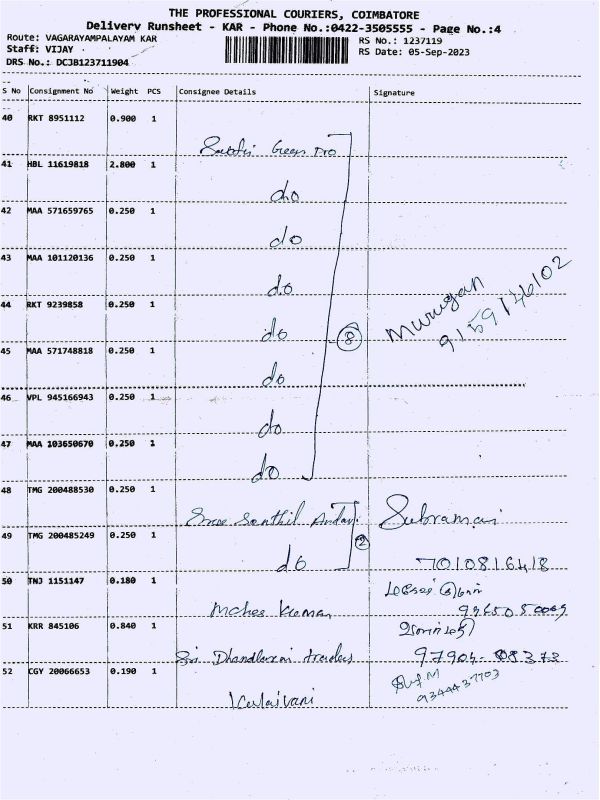 THE PROFESSIONAL COURIERS, COIMBATORE
Delivery Runsheet - KAR - Phone No.:0422-3505555 - Page No.:4
Route: VAGARAYAMPALAYAM KAR
RS No.: 1237119
Staff: VIJAY
RS Date: 05-Sep-2023
DRS No.: DCJB123711904
S No Consignment No Weight PCS Consignee Details Signature
40 RKT 8951112 0.900 1
Green
41 HBL 11619818 2.800 1
do
42 MAA 571659765 0.250 1
do
43 MAA 101120136 0.250 1
do
Murugan
9159146102
44 RKT 9239858 0.250 1
do
8
45 MAA 571748818 0.250 1
do
46 VPL 945166943 0.250 1
do
47 MAA 103650670 0.250 1
do
48 TMG 200488530 0.250 1
Sree Senthil
49 TMG 200485249 0.250 1
do
2
7010816418
50 TNJ 1151147 0.180 1
Kumar
51 KRR 845106 0.840 1
Sri Dhandlaxmi traders
97904-08373
52 CGY 20066653 0.190 1
Kalaivani